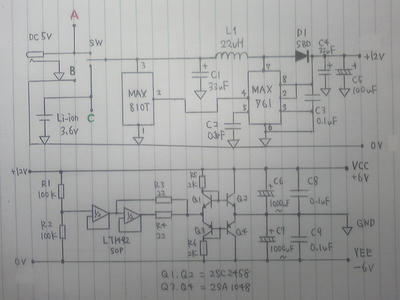 A
DC 5V
SW
B
Li-ion
3.6V
C
MAX
810T
3
2
1
C1
33uF
L1
22uH
D1
5BD
MAX
761
4
5
7
8
2
3
6
C2
C3
0.1uF
C4
C5
100uF
+12V
0V
+12V
R1
100K
R2
100K
1/2
1/2
R3
22
R4
22
R5
2K
R6
2K
Q1
Q2
Q3
Q4
C6
1000uF
C7
1000uF
C8
0.1uF
C9
0.1uF
VCC
+6V
GND
VEE
-6V
0V
SOP
Q1.Q2 = 2SC2458
Q3.Q4 = 2SA1048